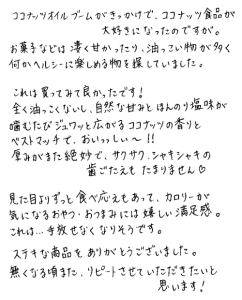 ココナッツオイルブームがきっかけで、ココナッツ食品が
大好きになったのですが。
お菓子などは凄く甘かったり、油っこい物が多く
何かヘルシーに楽しめる物を探していました。
これは買ってみて良かったです！
全く油っこくないし、自然な甘みとほんのり塩味が
噛むたびジュワッと広がるココナッツの香りと
ベストマッチで、おいっしぃ〜!!
厚みがまた絶妙で、サクサク、シャキシャキの
歯ごたえもたまりません♡
見た目よりずっと食べ応えもあって、カロリーが
気になるおやつ・おつまみには嬉しい満足感。
これは…手放せなくなりそうです。
ステキな商品をありがとうございました。
無くなる頃また、リピートさせていただきたいと
思います！